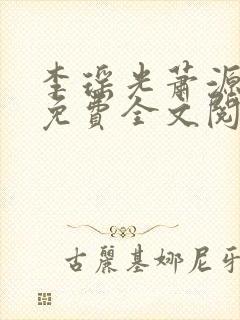 李瑶光萧源
免費全文閱
古麗基娜尼牙